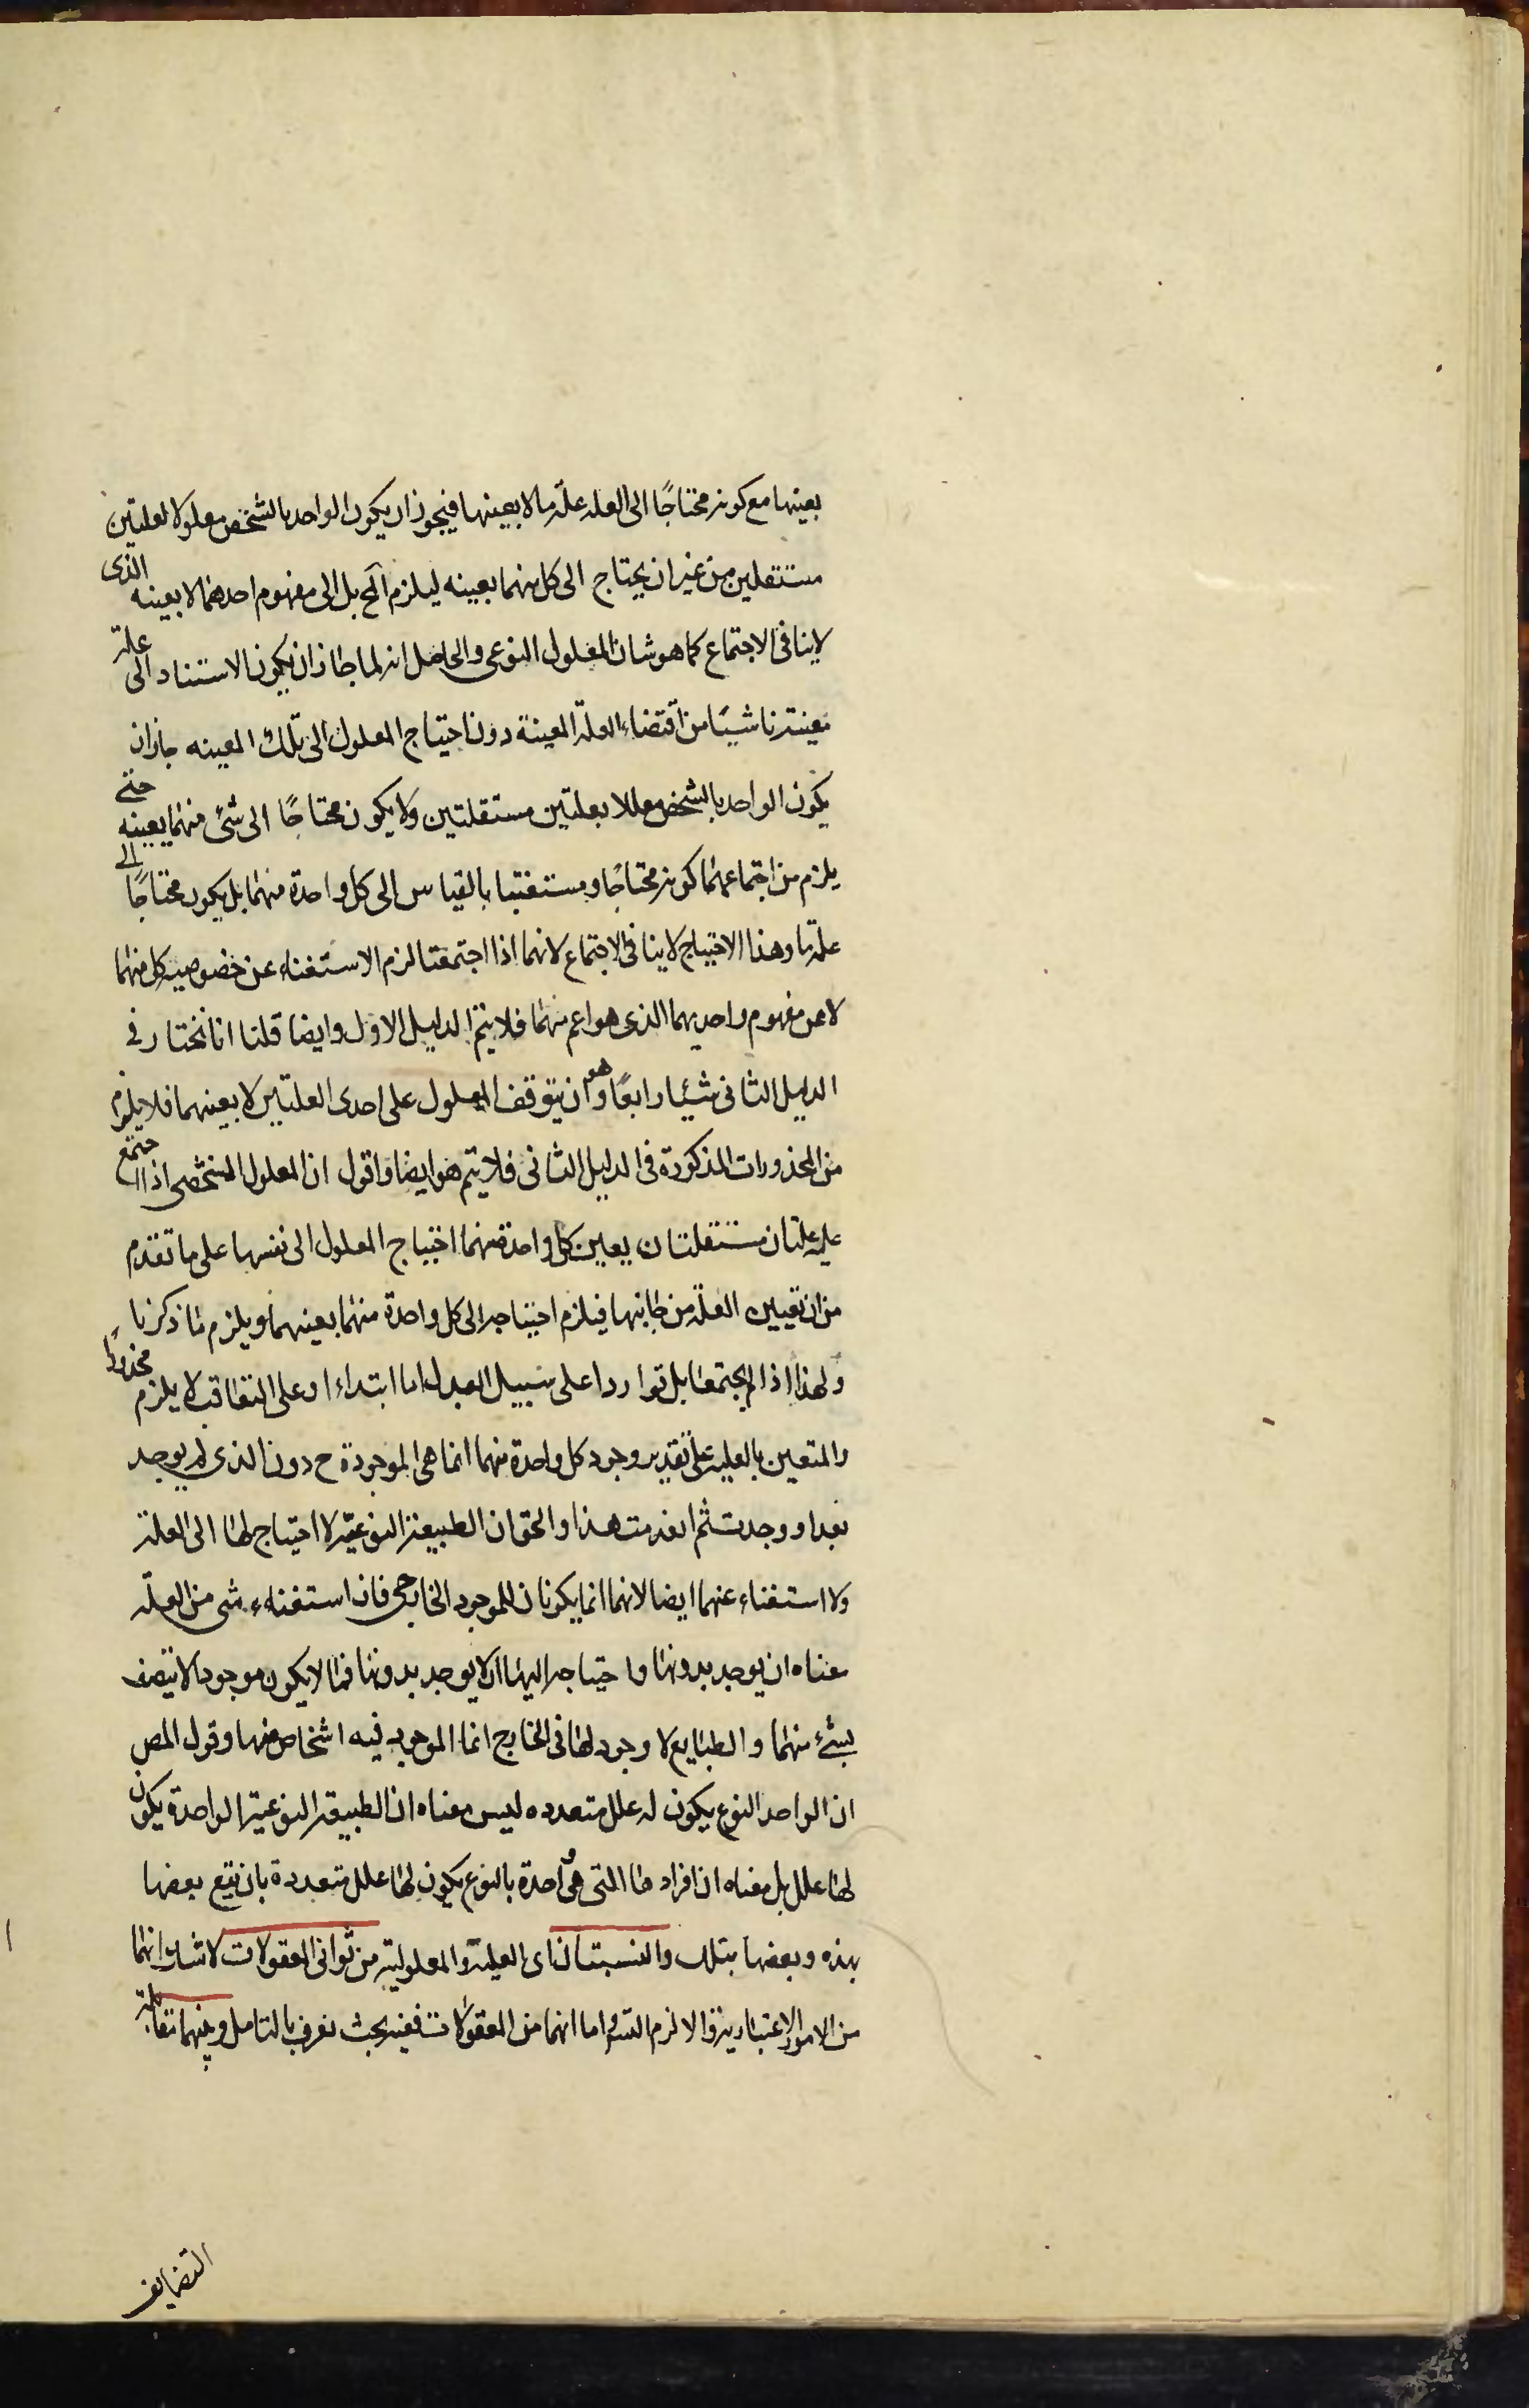 بعينها مع كونه محتاجًا الى العله علّة ما لا بعينها فيجوز ان يكون الواحد بالشخص معلولا لعلتين
مستقلين من غير ان يحتاج الى كل منهما بعينه ليلزم المح بل الى مفهوم احدهما لا بعينه الذى
لا ينافى الاجتماع كما هو شان المعلول النوعى والحاصل انه لما جاز ان يكون الاستناد الى علة
معينة ناشيًا من اقتضاء العلة المعينة دون احتياج المعلول الى تلك المعينه جاز ان
يكون الواحد بالشخص معللا بعلتين مستقلتين ولا يكون محتاجًا الى شئ منهما بعينه حتى
يلزم من اجتماعهما كونه محتاجًا ومستغنيا بالقياس الى كل واحدة منهما بل يكون محتاجًا الى
علة ما وهذا الاحتياج لا ينافى الاجتماع لانهما اذا اجتمعتا لزم الاستغناء عن خصوصية كل منهما
لا عن مفهوم واحديهما الذى هو اعم منهما فلا يتم الدليل الاول وايضا قلنا انا نختار فى
الدليل الثانى شيئا رابعًا وهو ان يتوقف المعلول على احدى العلتين لا بعينهما فلا يلزم
من المحذورات المذكورة فى الدليل الثانى فلا يتم هو ايضا واقول ان المعلول الشخصى اذا اجتمع
عليه علتان مستقلتان يعين كل واحدة منهما احتياج المعلول الى نفسها على ما تقدم
من ان تعيين العلة من جانبها فيلزم احتياجه الى كل واحدة منهما بعينهما ويلزم ما ذكرنا
ولهذا اذا لم يجتمعا بل تواردا على سبيل البدل اما ابتداء او على التعاقب لا يلزم محذورًا
والمتعين بالعلية على تقدير وجود كل واحدة منهما انما هى الموجودة ح دون الذى لم يوجد
بعد او وجدت ثم انعدمت هذا والحق ان الطبيعة النوعية لا احتياج لها الى العلة
ولا استغناء عنهما ايضا لانهما انما يكونان للموجود الخارجى فان استغناء شى من العلة
معناه ان يوجد بدونها واحتياجه اليها ان لا يوجد بدونها فما لا يكون موجودا لا يتصف
بشئ منهما والطبايع لا وجود لها فى الخارج انما الموجود فيه اشخاص منها وقول المص
ان الواحد النوع يكون له علل متعدده ليس معناه ان الطبيعة النوعية الواحدة يكون
لها علل بل معناه ان افرادها التى هى واحدة بالنوع يكون لها علل متعددة بان يقع بعضها
بهذه وبعضها بتلك والنسبتان اى العلية والمعلولية من ثوانى المعقولات لا شك انهما
من الامور الاعتبارية والا لزم التس واما انهما من المعقولات ففيه بحث يعرف بالتامل وبينهما تقابل
التضايف